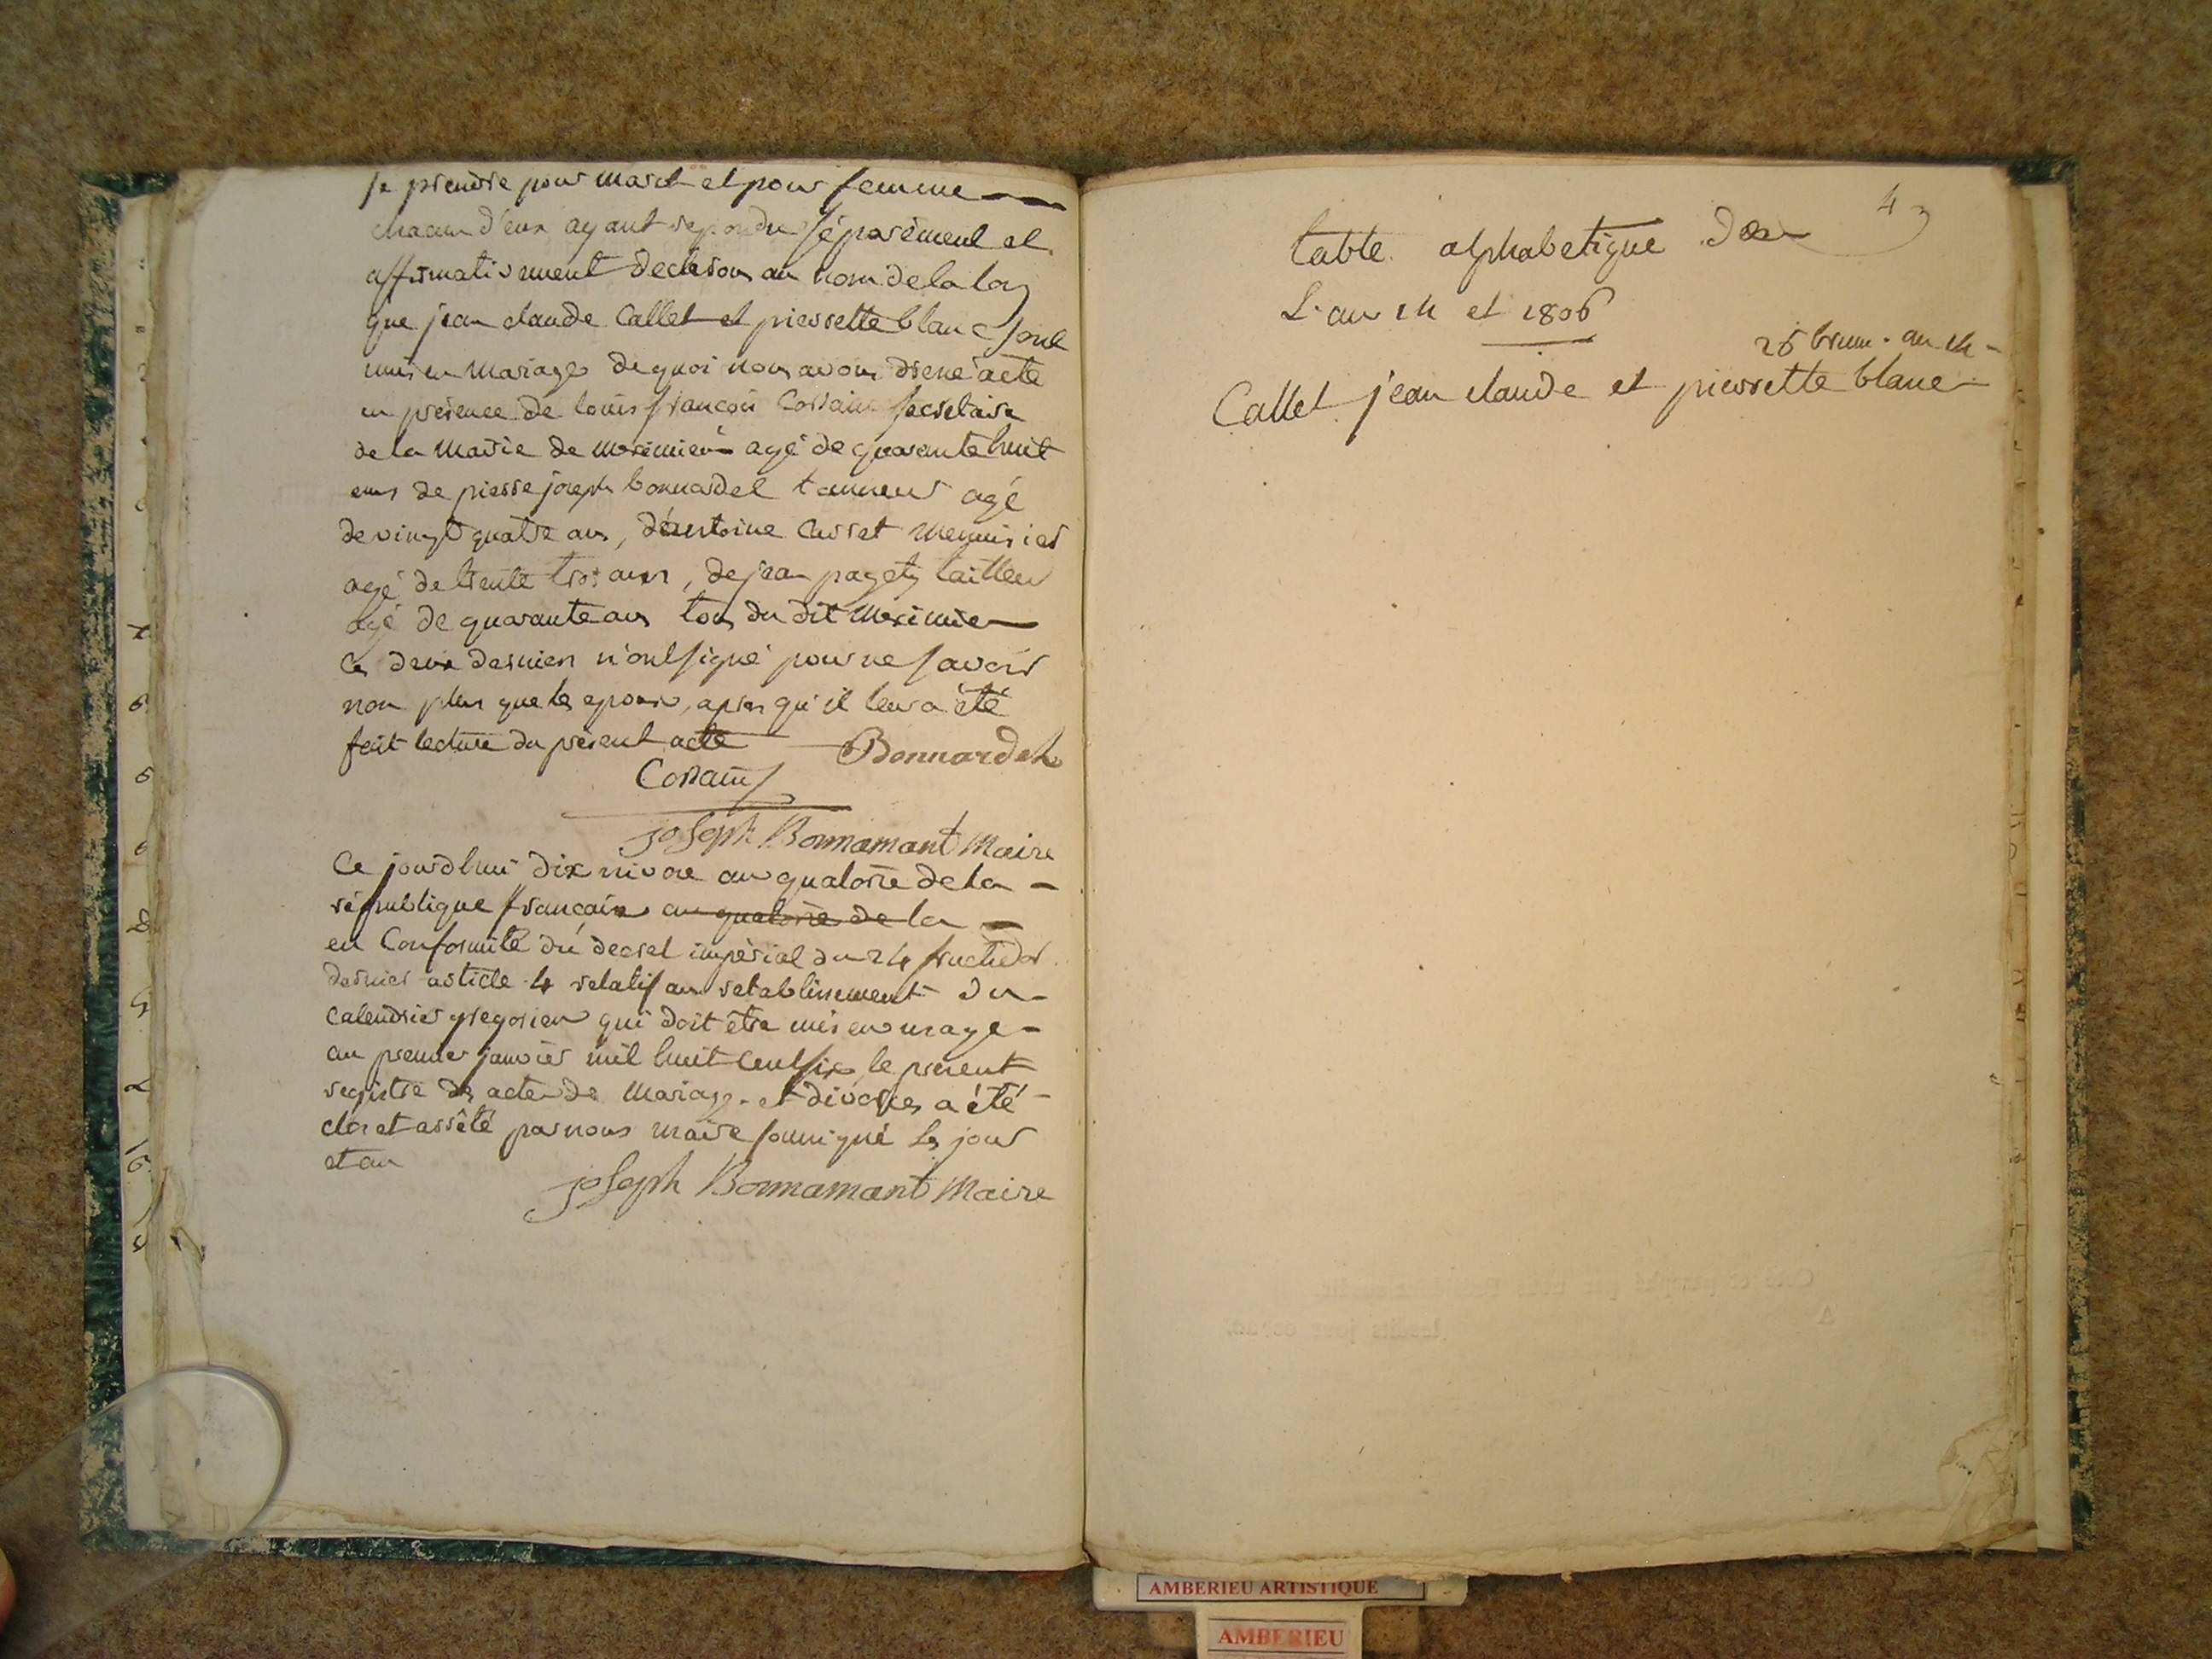 se prendre pour mari et pour femme
chacun d'eux ayant repondu séparément et
affirmativement declarons au nom de la loy
que jean claude Callet et pierrette blanc sont
unis en mariage de quoi nous avons dressé acte
en présence de louis françois secretaire
de la Mairie de meximieux agé de quarante huit
ans de pierre joseph bonnardel tanneur agé
de vingt quatre ans, d'antoine Curset menuisier
agé de trente trois ans, de jean pagety tailleur
agé de quarante ans tous du dit meximieux
Ces deux derniers n'ont signé pour ne savoir
non plus que les epoux, apres qu'il leur a été
fait lecture du présent acte Bonnardel
Joseph Bonnamant Maire
Ce jourdhui dix nivose an quatorze de la
république française an quatorze de la
en Conformité du décret impérial du 24 fructidor
dernier article 4 relatif au rétablissement du
Calendrier gregorien qui doit être mis en usage
au premier janvier mil huit cent six, le présent
registre des actes de Mariage et divorces a été
clos et arrêté par nous maire soussigné les jour
et an
Joseph Bonnamant Maire
4
table alphabetique des
L'an 14 et 1806
25 brum. an 14
Callet jean claude et pierrette blanc
AMBERIEU ARTISTIQUE
AMBERIEU